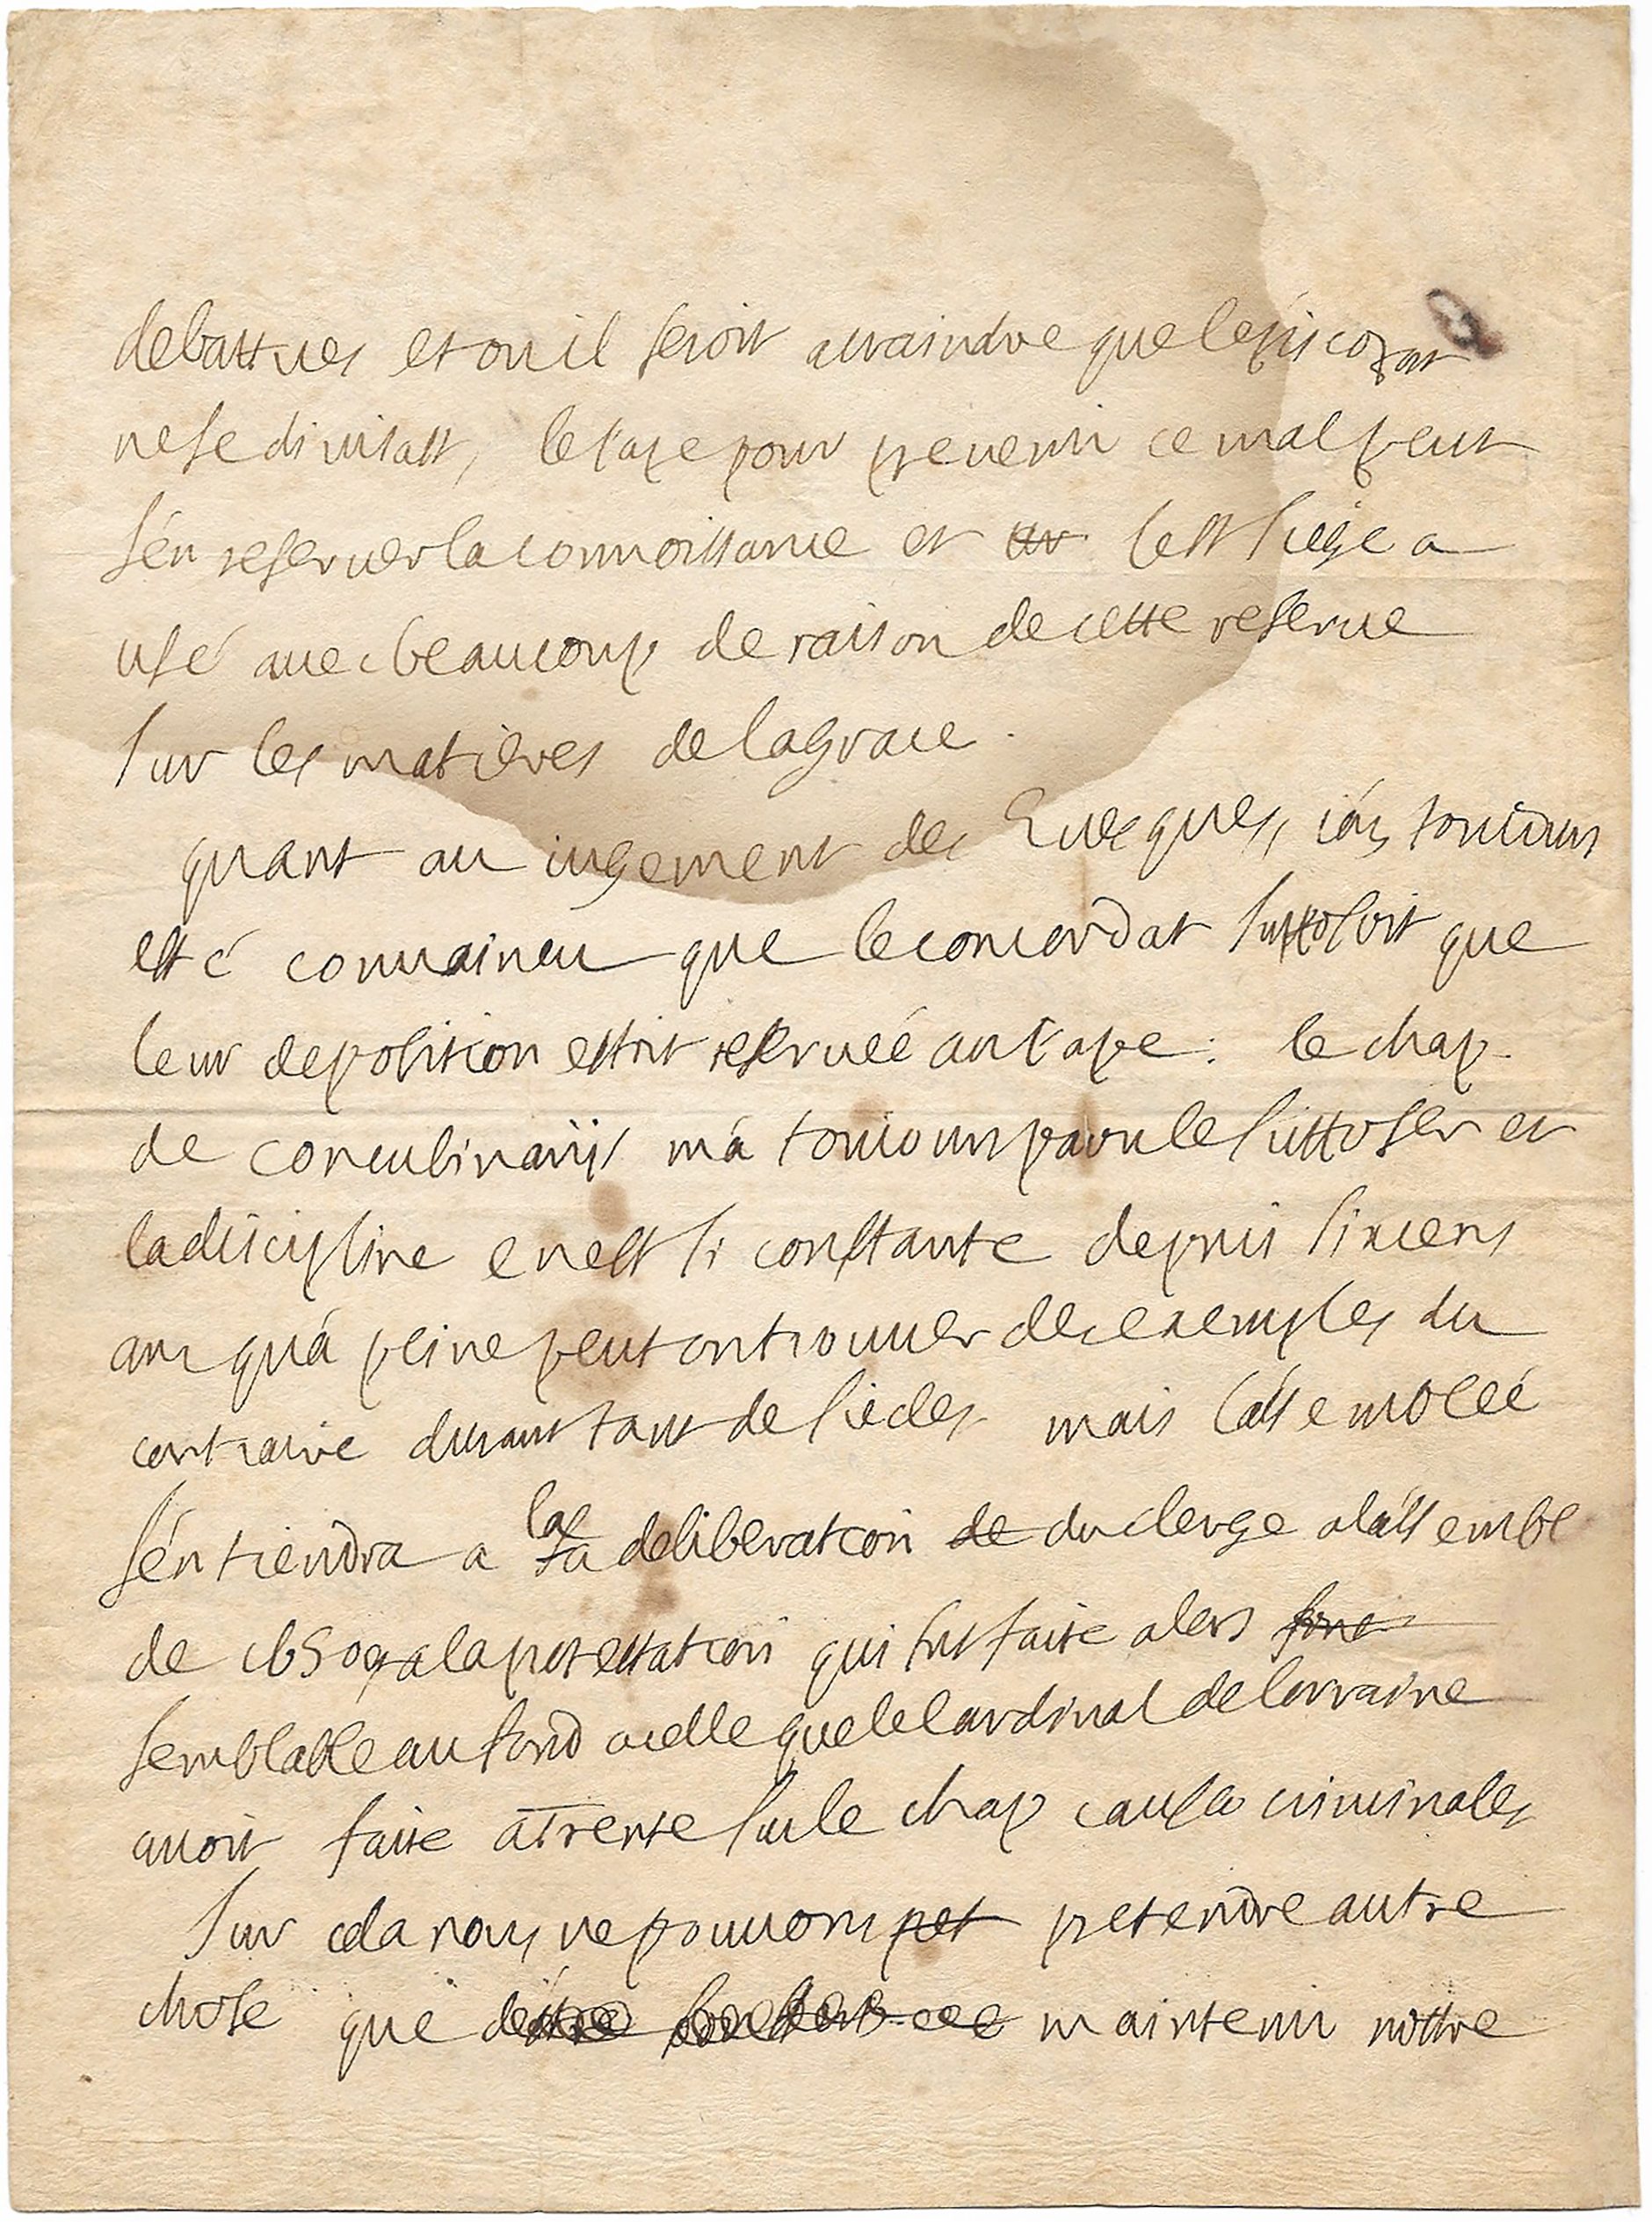 debattues et ou il seroit a craindre que lepiscopat
ne se divisast, le Pape pour prevenir ce mal peut
s'en reserver la connoissance et le St Siege a
usé avec beaucoup de raison de cette reserve
sur les matieres de la grace.
quant au iugement des Evesques, i'ay tousiours
esté convaincu que le concordat supposoit que
leur deposition estoit reservée au Pape: le chap.
de concubinariis m'a tousiours paru le supposer et
la discipline en est si constante depuis six cens
ans qu'a peine peut on trouver des exemples du
contraire durant tant de siecles mais l'assemblée
s'en tiendra a la deliberation de du clergé a l'assemblée
de 1650 et a la protestation qui fut faite alors
semblable au fond a celle que le Cardinal de Lorraine
avoit faite a Trente sur le chap causae criminales
Sur cela nous ne pouvons pretendre autre
chose que maintenir nostre